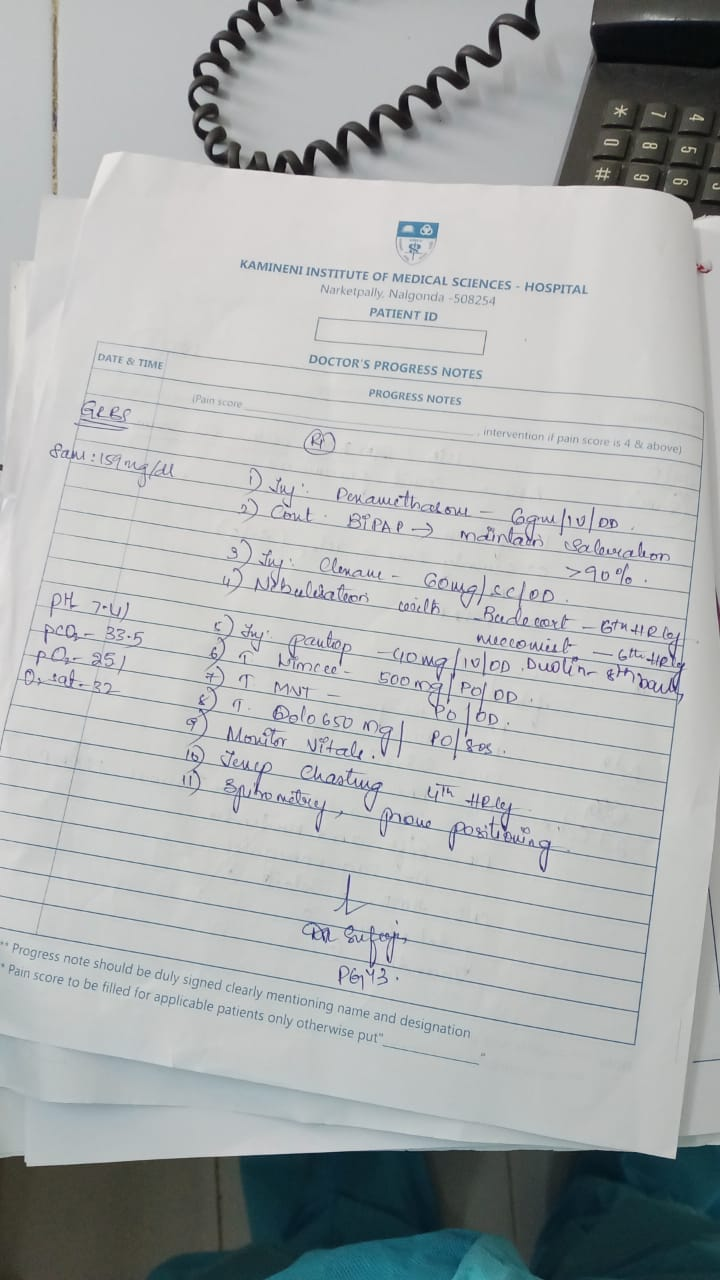 * 7 4
0 8 5
# 9 6
KAMINENI INSTITUTE OF MEDICAL SCIENCES - HOSPITAL
Narketpally, Nalgonda -508254
PATIENT ID
DOCTOR'S PROGRESS NOTES
DATE & TIME
PROGRESS NOTES
(Pain score ____________, intervention if pain score is 4 & above)
GRBS
8am: 159mg/dl
PH 7.41
pCO2 - 33.5
pO2 - 251
O2 sat - 32
Rx
1) Inj: Dexamethasone - 6gm/IV/OD.
2) Cont. BIPAP → maintain saturation
>90%.
3) Inj: Clexane - 60mg/SC/OD.
4) Nebulisation with Budecort - 6th HRly
muccomist - 6th HRly
Duolin - 8th
5) Inj: pantop - 40mg/IV/OD.
6) T Limcee - 500mg/PO/OD.
7) T MNT - PO/OD.
8) T. Dolo 650 mg/PO/sos.
9) Monitor Vitals.
10) Temp Charting 4th HRly
11) Spirometry, prone positioning
PGY3.
** Progress note should be duly signed clearly mentioning name and designation
* Pain score to be filled for applicable patients only otherwise put"____________"